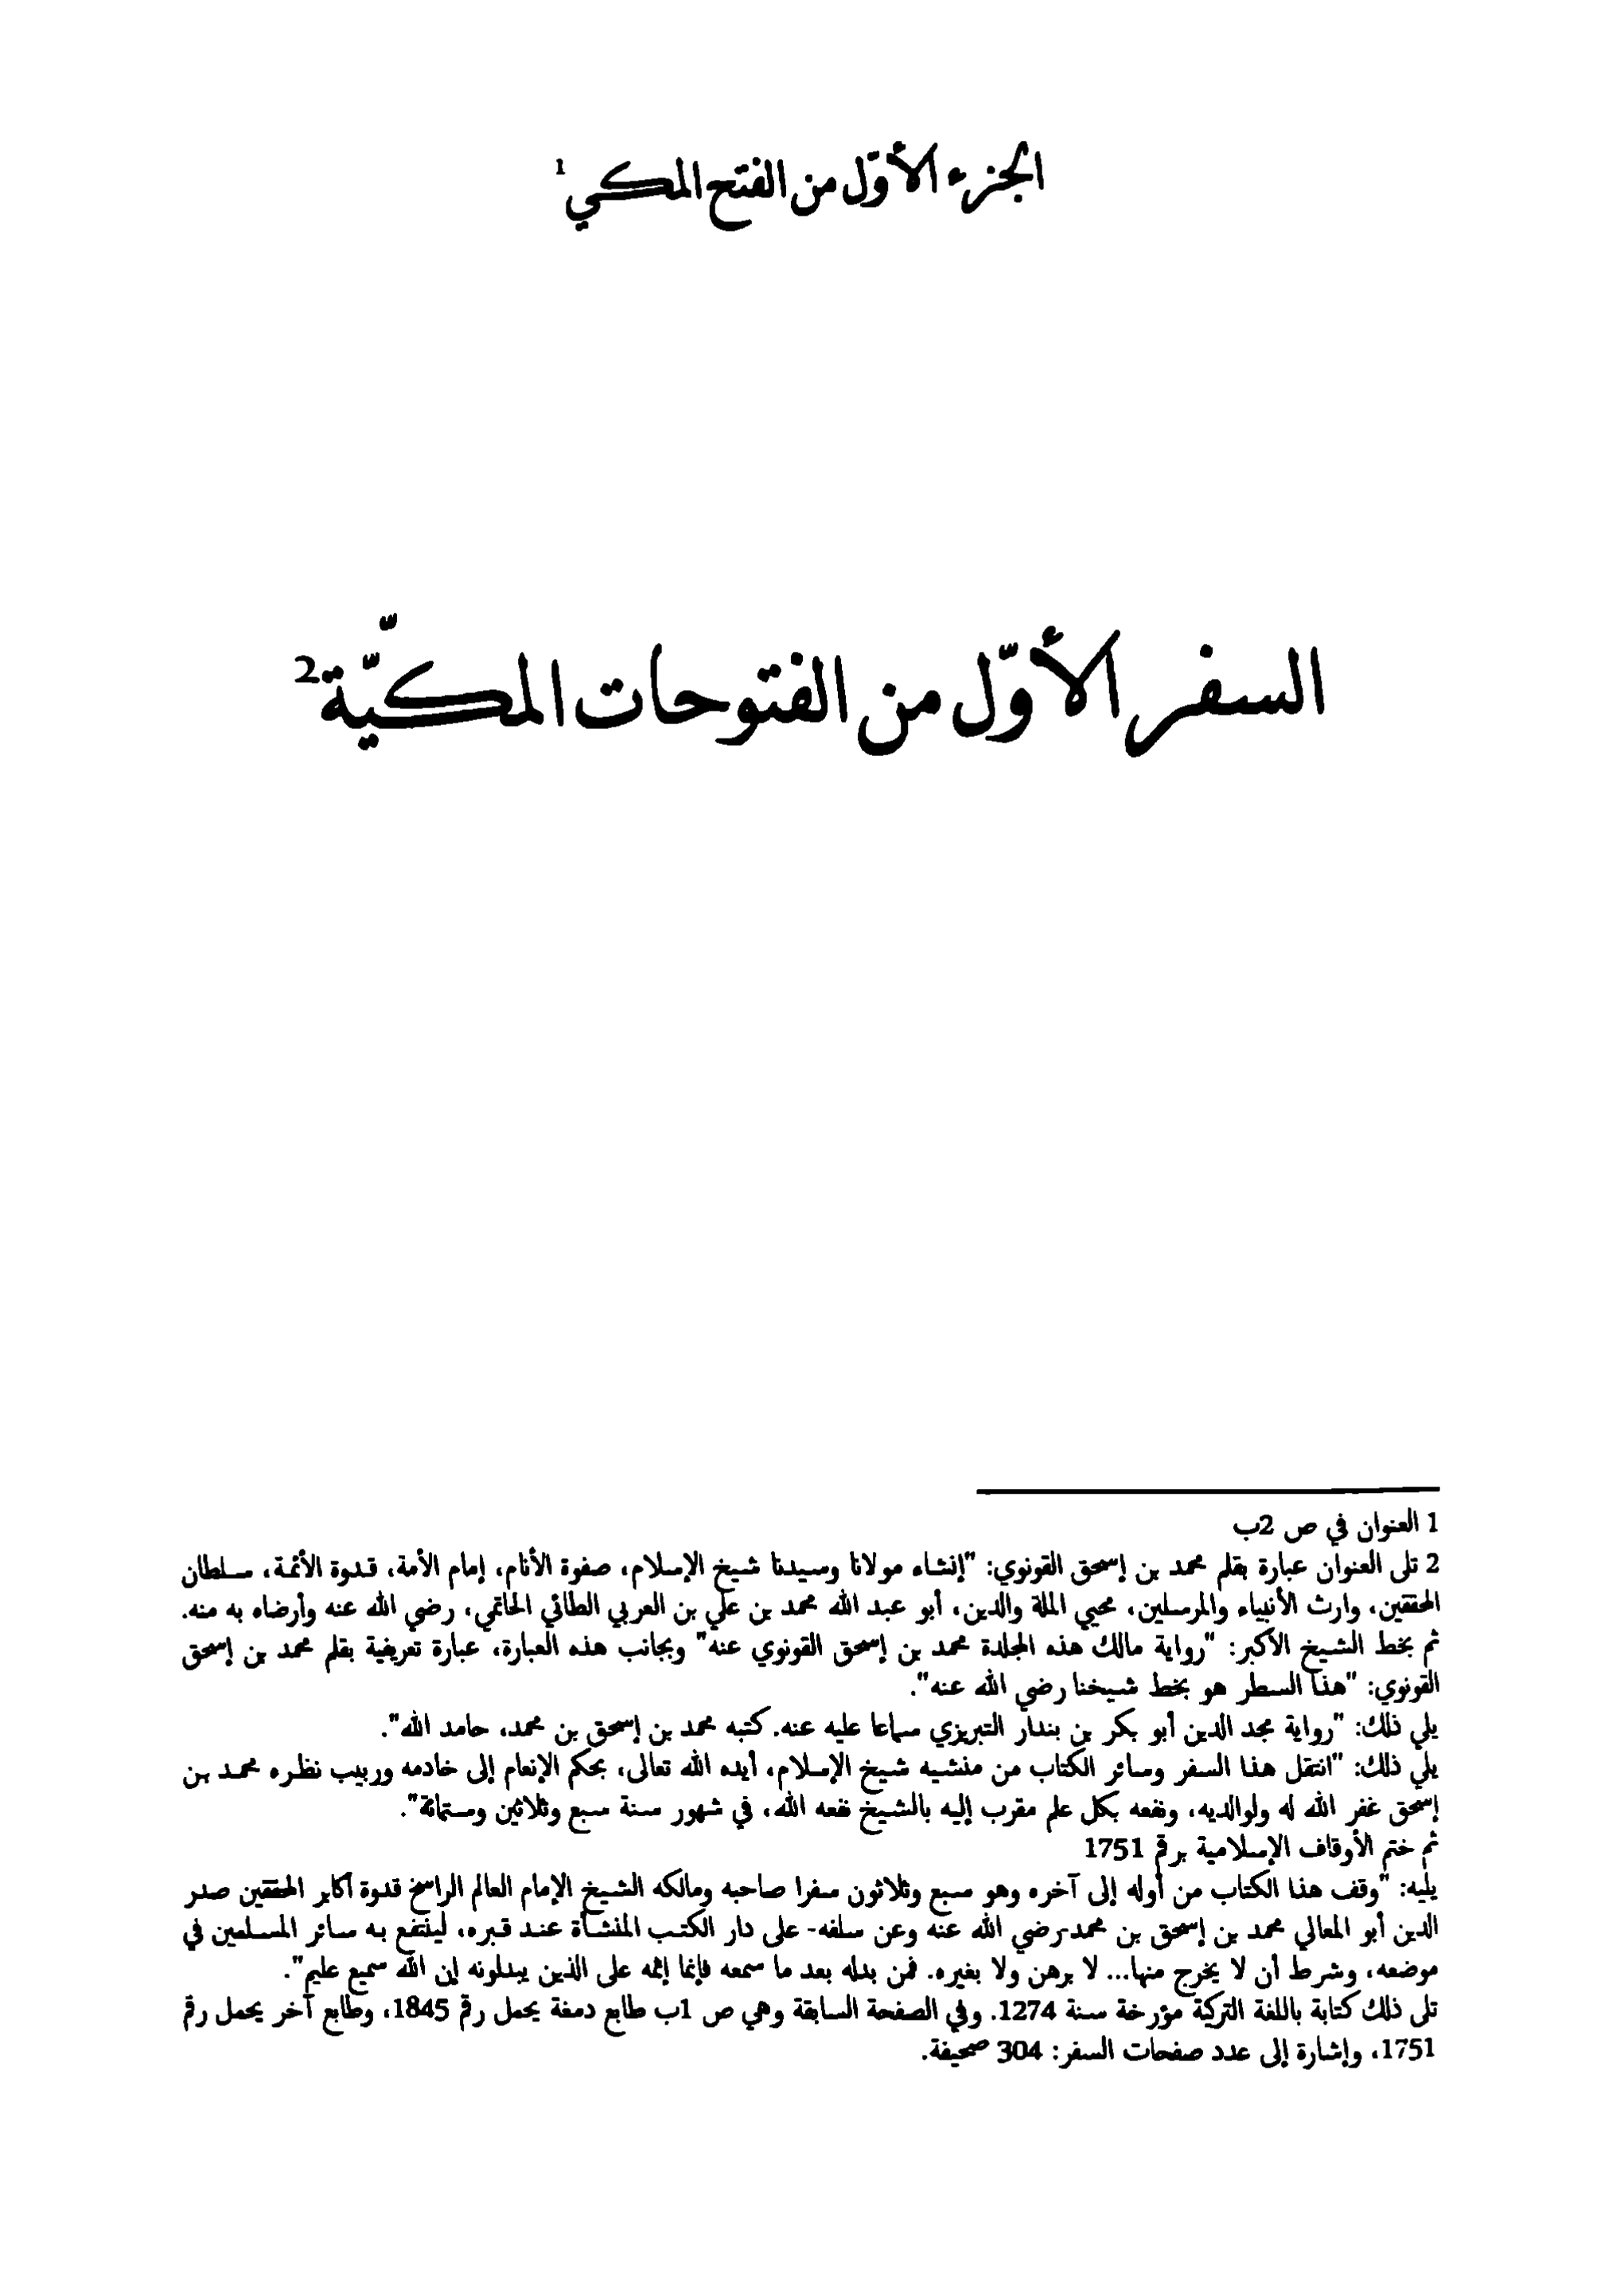 الجزء الأوّل من الفتح المكي¹
السفر الأوّل من الفتوحات المكيّة²
1 العنوان في ص 2ب
2 تلى العنوان عبارة بقلم محمد بن إسحق القونوي: "إنشاء مولانا وسيدنا شيخ الإسلام، صفوة الأنام، إمام الأمة، قدوة الأئمة، سلطان
المحققين، وارث الأنبياء والمرسلين، محيي الملة والدين، أبو عبد الله محمد بن علي بن العربي الطائي الحاتمي، رضي الله عنه وأرضاه به منه.
ثم بخط الشيخ الأكبر: "رواية مالك هذه المجلدة محمد بن إسحق القونوي عنه" وبجانب هذه العبارة، عبارة تعريفية بقلم محمد بن إسحق
القونوي: "هذا السطر هو بخط شيخنا رضي الله عنه".
يلي ذلك: "رواية مجد الدين أبو بكر بن بندار التبريزي سماعا عليه عنه. كتبه محمد بن إسحق بن محمد، حامد الله".
يلي ذلك: "انتقل هذا السفر وسائر الكتاب من منشيه شيخ الإسلام، أيده الله تعالى، بحكم الإنعام إلى خادمه وربيب نظره محمد بن
إسحق غفر الله له ولوالديه، ونفعه بكل علم مقرب إليه بالشيخ نفعه الله، في شهور سنة سبع وثلاثين وستمائة".
ثم ختم الأوقاف الإسلامية برقم 1751
يليه: "وقف هذا الكتاب من أوله إلى آخره وهو سبع وثلاثون سفرا صاحبه ومالكه الشيخ الإمام العالم الراسخ قدوة أكابر المحققين صدر
الدين أبو المعالي محمد بن إسحق بن محمد-رضي الله عنه وعن سلفه- على دار الكتب المنشأة عند قبره، لينتفع به سائر المسلمين في
موضعه، وشرط أن لا يخرج منها... لا برهن ولا بغيره. فمن بدله بعد ما سمعه فإنما إثمه على الذين يبدلونه إن الله سميع عليم".
تلى ذلك كتابة باللغة التركية مؤرخة سنة 1274. وفي الصفحة السابقة وهي ص 1ب طابع دمغة يحمل رقم 1845، وطابع آخر يحمل رقم
1751، وإشارة إلى عدد صفحات السفر: 304 صحيفة.